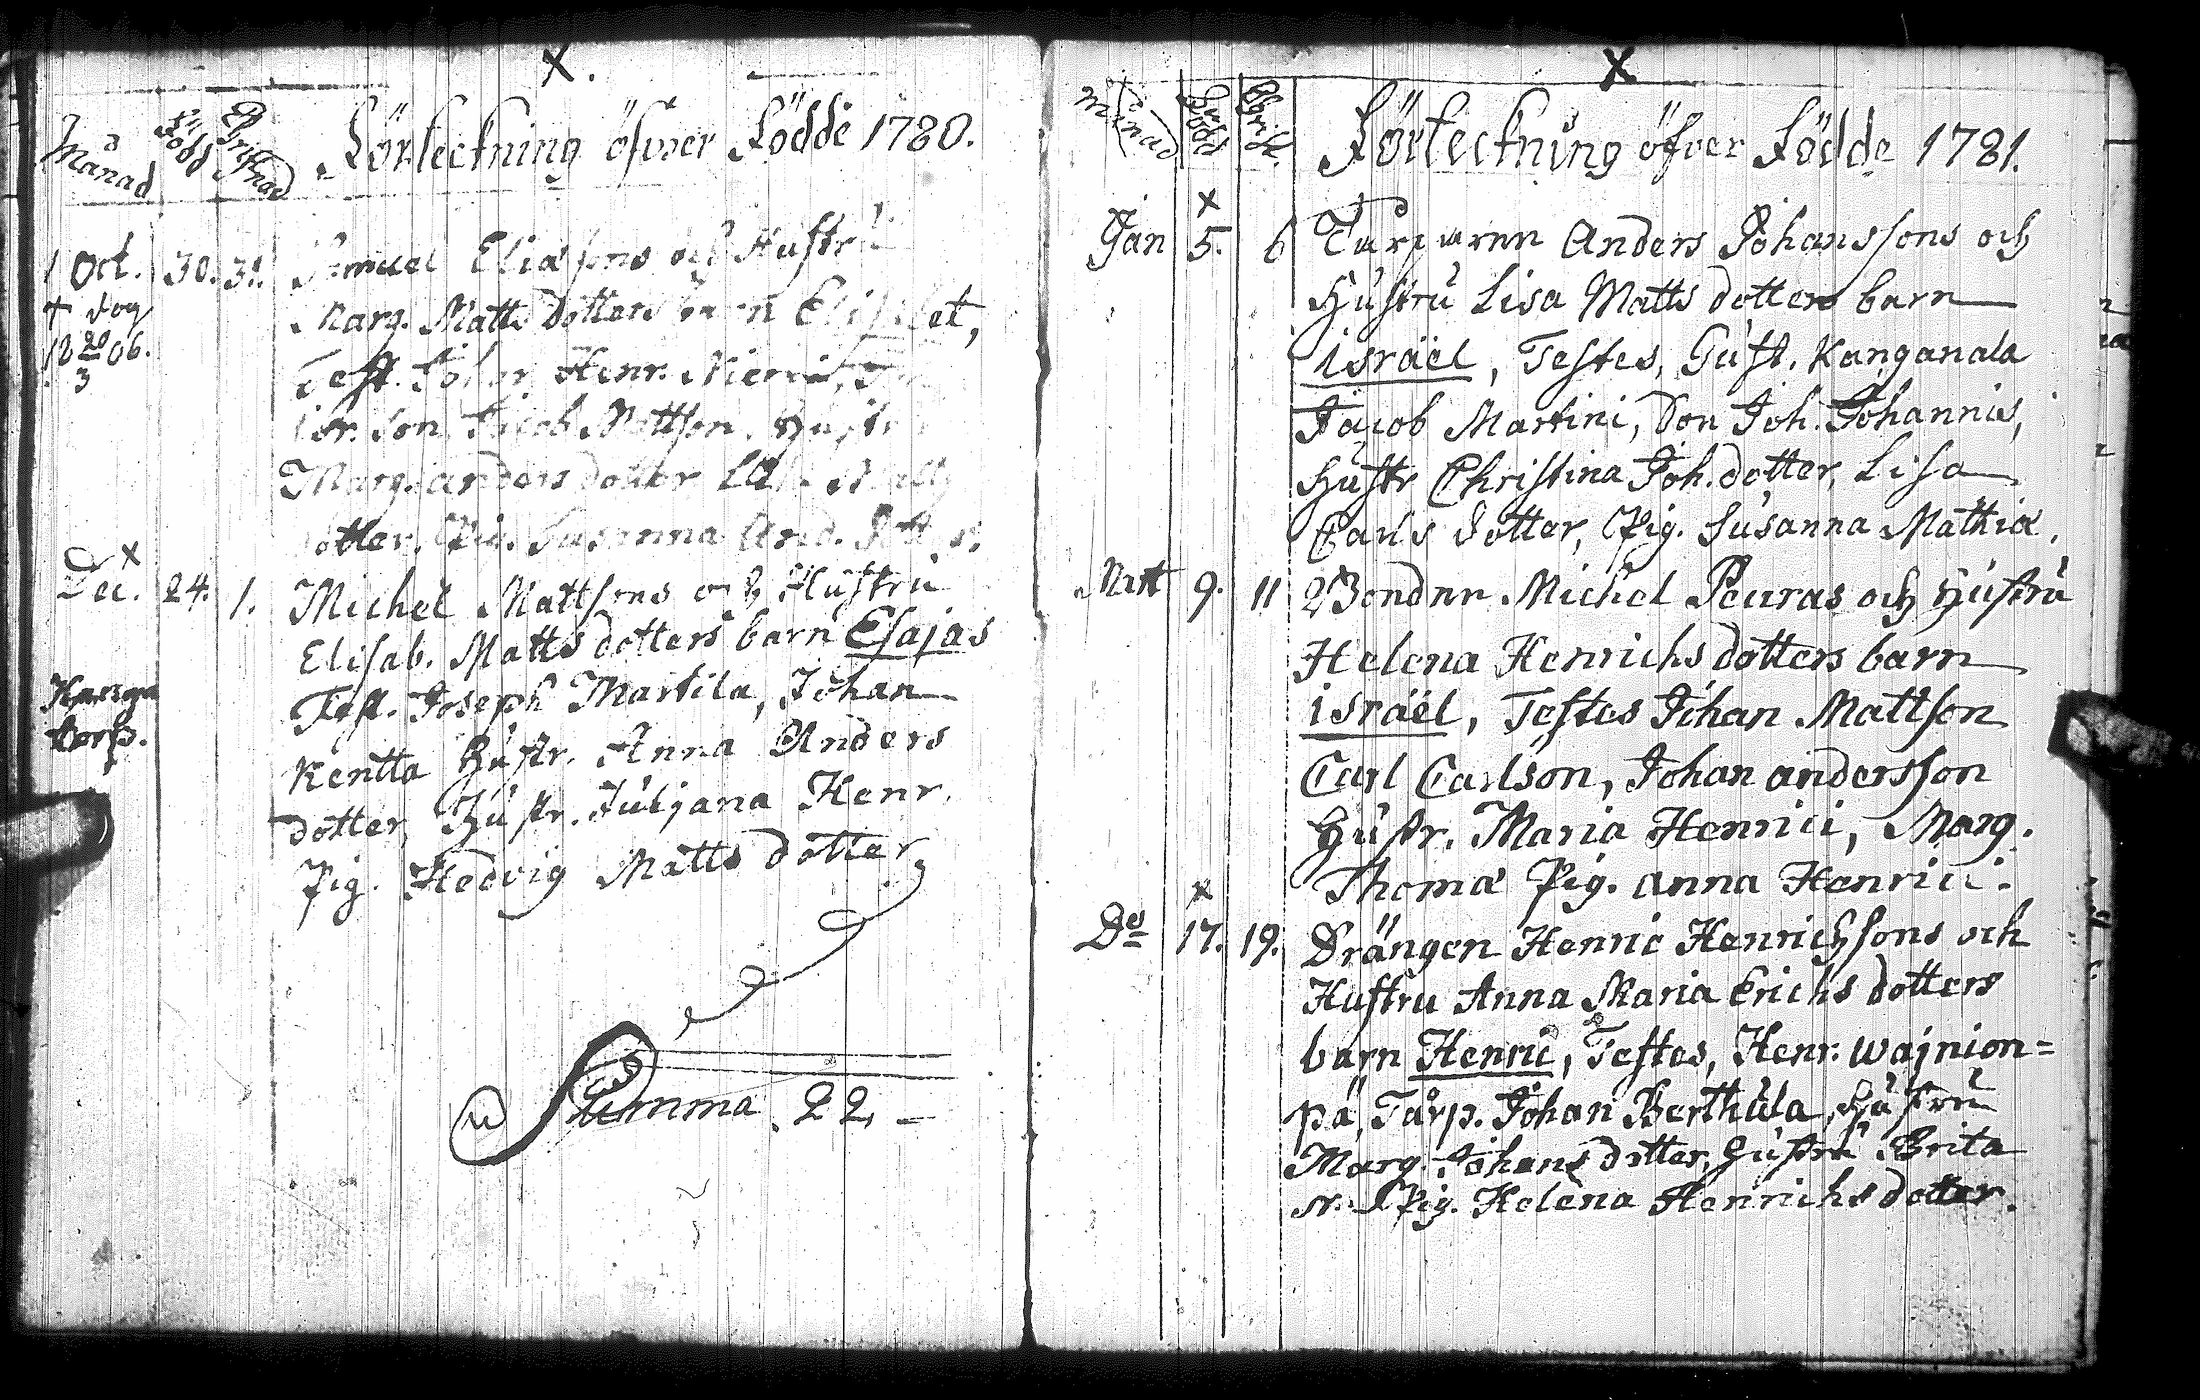 X.
Månad
Född
Christnad
Förteckning öfver Födde 1780.
1 Oct. 30. 31. Samuel Eliæsons och Hustru
+ dog
18 20/3 06.
Marg. Matts dotters barn Elisabet,
Test. Johan Henr.
son, Jacob Mattson, Hustr
Marg. anders dotter Matts
dotter, Pig. Susanna And. dotter.
x
Dec. 24. 1. Michel Mattsons och Hustru
Elisab. Matts dotters barn Esajas
Kanga
torp.
Test. Joseph Martila, Johan
Kentta Hustr. Anna Anders
dotter, Hustr. Juljana Henr.
Pig. Hedvig Matts dotter
Summa 22 –
X
Månad
Född
Christ.
Förteckning öfver Födde 1781.
x
Jan 5. 6 Torparen Anders Johanssons och
Hustru Lisa Matts dotters barn
israël, Testes, Gust. Kanganala
Jacob Martini, Don Joh. Johannis,
Hustr Christina Joh. dotter, Lisa
Carls dotter, Pig. Susanna Mathiæ.
Mart 9. 11 Bonden Michel Peuras och Hustru
Helena Henrichs dotters barn
israël, Testes Johan Mattson
Carl Carlson, Johan andersson
Hustr. Maria Henrici, Marg.
Thomæ Pig. anna Henrici.
x
Do 17. 19. Drängen Henric Henrichsons och
Hustru Anna Maria Erichs dotters
barn Henric, Testes, Henr. wajnion=
pä, Tårp. Johan Berthula, Hustru
Marg. Johans dotter, Hustru Brita
N. Pig. Helena Henrichs dotter.